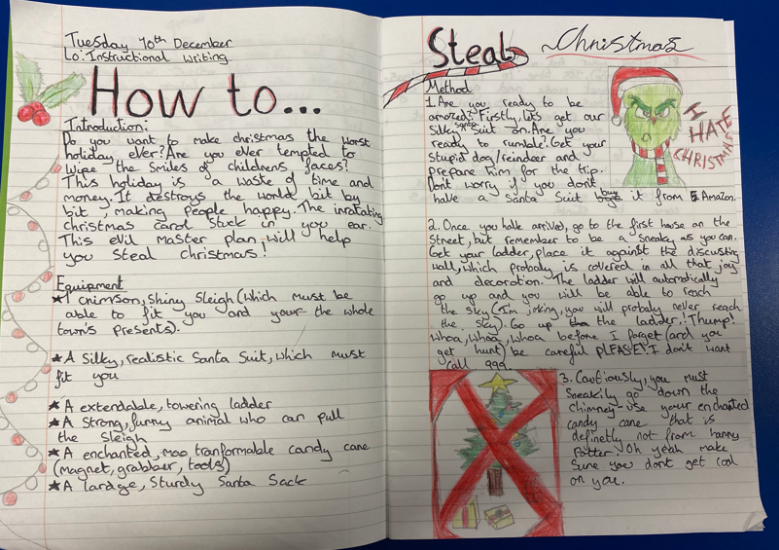 Tuesday 10th December
Lo: Instructional writing
How to...
Introduction:
Do you want to make christmas the worst
holiday ever? Are you ever tempted to
Wipe the smiles of childrens faces?
This holiday is a waste of time and
money. It destroys the world bit by
bit, making people happy. The irrotating
christmas carol stuck in you ear.
This evil master plan, will help
you steal Christmas!
Equipment
★ 1 crimson, shiny sleigh (which must be
able to fit you and your the whole
town's presents).
★ A silky, realistic Santa Suit, which must
fit you
★ A extendable, towering ladder
★ A strong, furry animal who can pull
the sleigh
★ A enchanted, mao tranformable candy cane
(magnet, grabbaer, tools)
★ A lardge, sturdy Santa Sack
Steal Christmas
Method
1. Are you ready to be
amazed? Firstly, lets get our
silky santa suit on. Are you
ready to rumble? Get your
stupid dog/reindeer and
prepare him for the trip.
Dont worry if you don't
have a santa suit buy it from Amazon.
I
HATE
CHRISTMAS
2. Once you have arrived, go to the first house on the
street, but remember to be a sneaky as you can.
Get your ladder, place it against the discusting
wall, which probaly is covered in all that joy
and decoration. The ladder will automatically
go up and you will be able to reach
the sky (I'm joking, you will probaly never reach
the sky). Go up the ladder,! Thump!
Whoa, whoa, whoa before I forget (and you
get hurt) be careful PLEASE! I don't want
call 999.
3. Cautiously, you must
sneakily go down the
chimney - use your enchanted
candy cane that is
definetly not from harry
Potter. Oh yeah make
sure you dont get coal
on you.